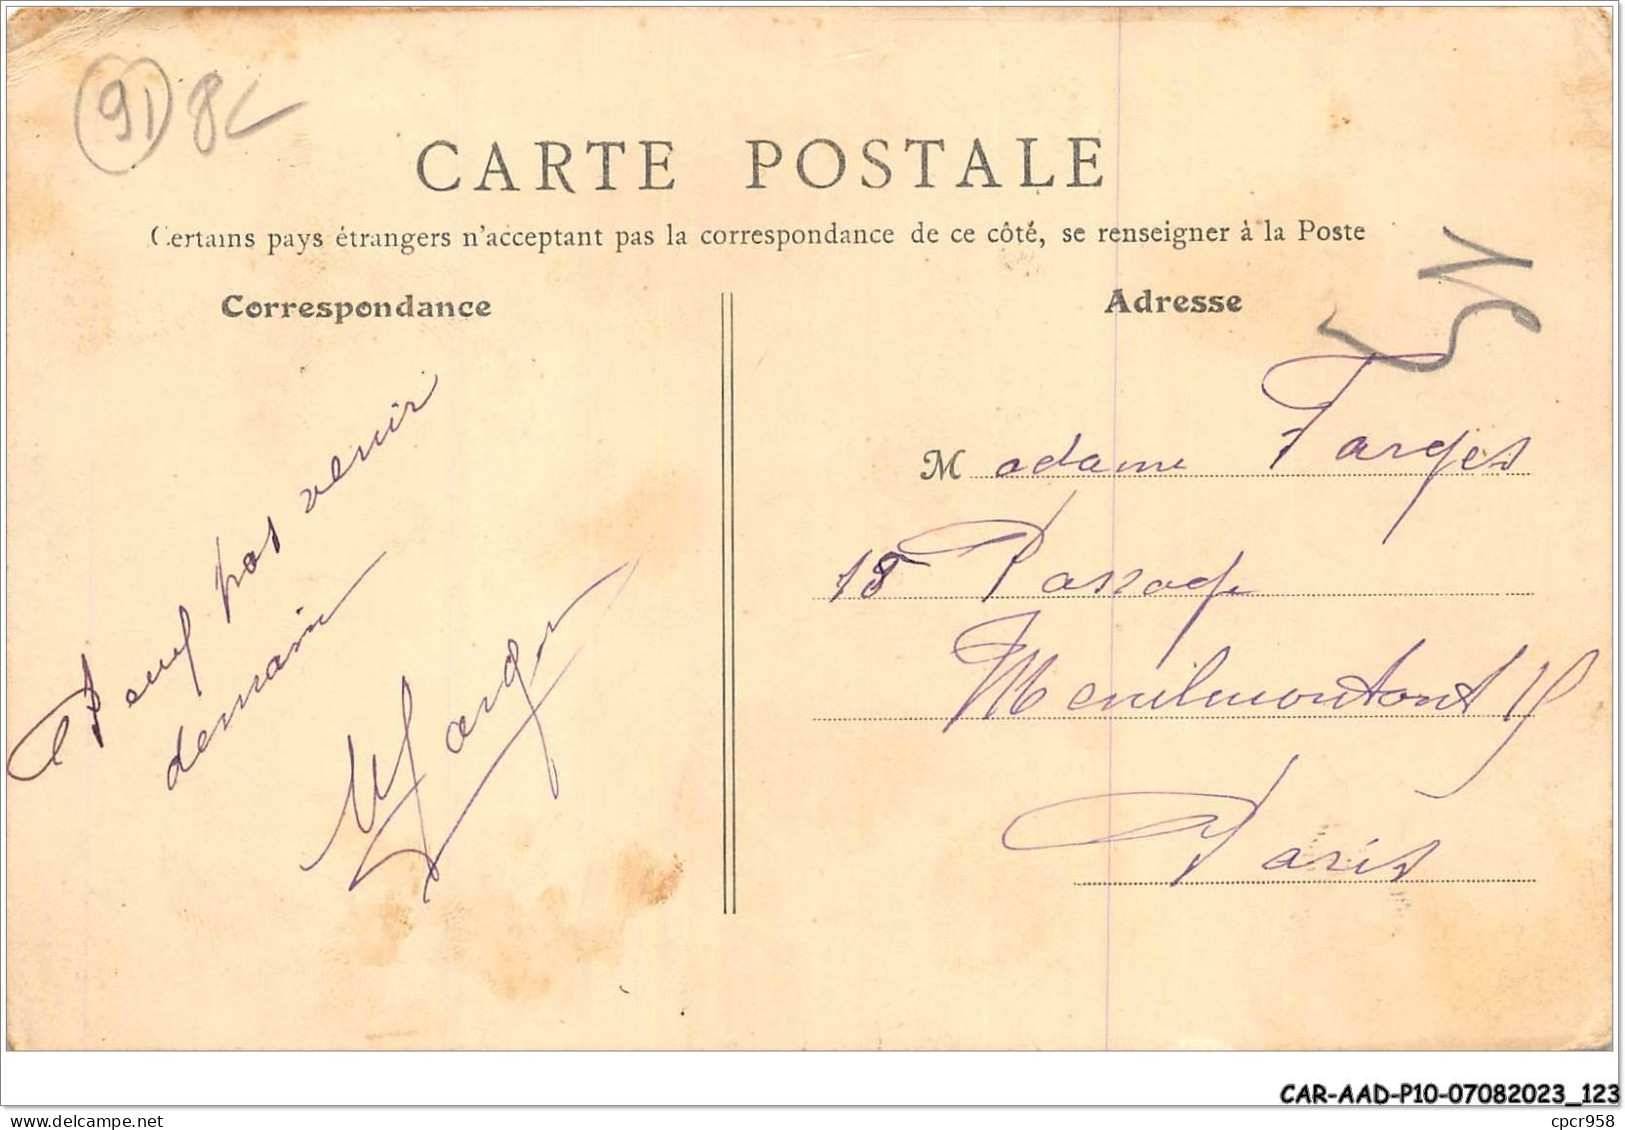 91 8
CARTE POSTALE
Certains pays étrangers n'acceptant pas la correspondance de ce côté, se renseigner à la Poste
Correspondance
Peux pas venir
demain
Farges
Adresse
Madame Farges
18 Passage
Menilmontant
Paris
CAR-AAD-P10-07082023_123
delcampe.net
cpcr958